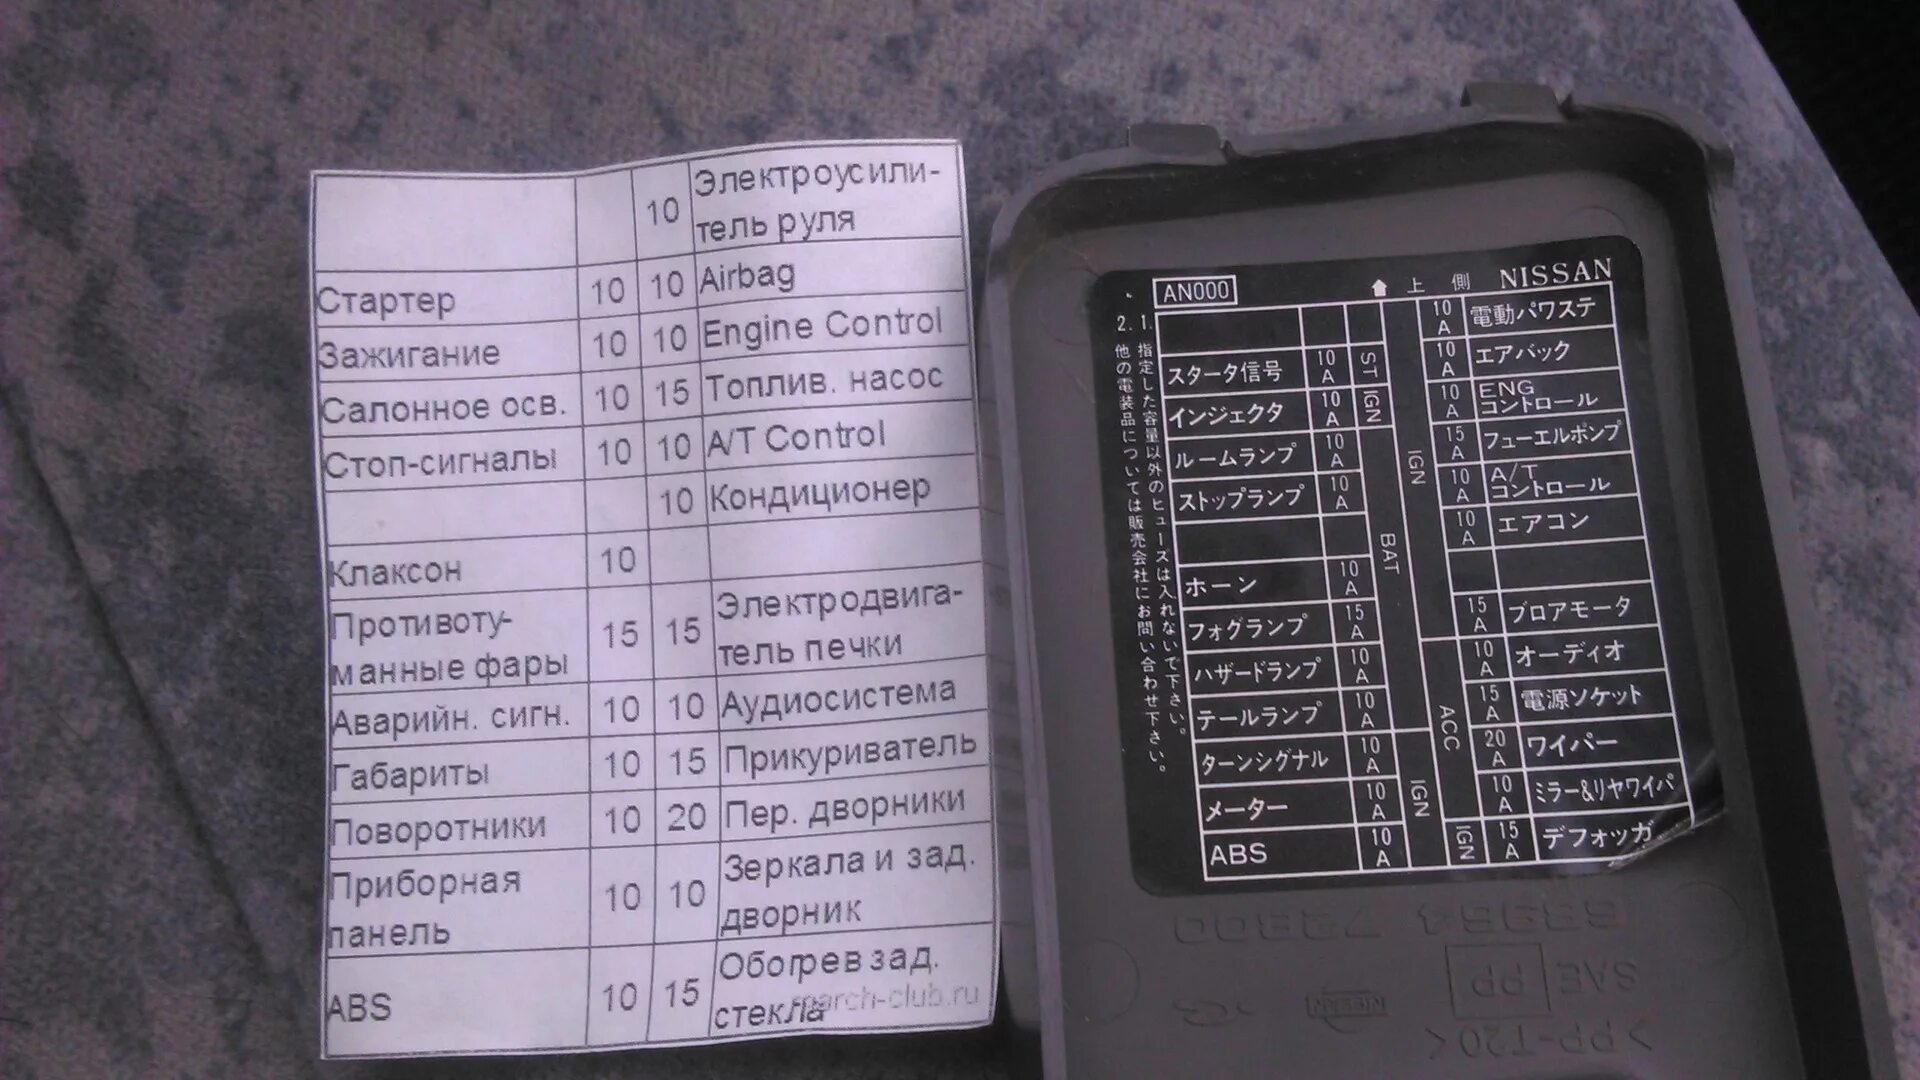 10 Электроусили-
тель руля
Стартер 10 10 Airbag
Зажигание 10 10 Engine Control
Салонное осв. 10 15 Топлив. насос
Стоп-сигналы 10 10 A/T Control
10 Кондиционер
Клаксон 10
Противоту-
манные фары 15 15 Электродвига-
тель печки
Аварийн. сигн. 10 10 Аудиосистема
Габариты 10 15 Прикуриватель
Поворотники 10 20 Пер. дворники
Приборная
панель 10 10 Зеркала и зад.
дворник
ABS 10 15 Обогрев зад.
стекла
march-club.ru
AN000 上側 NISSAN
1. 指定した容量以外のヒューズは入れないで下さい。
2. 他の電装品については販売会社にお問い合わせ下さい。
10A 電動パワステ
スタータ信号 10A ST 10A エアバック
インジェクタ 10A IGN 10A ENGコントロール
ルームランプ 10A 15A フューエルポンプ
ストップランプ 10A IGN 10A A/Tコントロール
10A エアコン
ホーン 10A BAT
フォグランプ 15A 15A ブロアモータ
ハザードランプ 10A 10A オーディオ
テールランプ 10A ACC 15A 電源ソケット
ターンシグナル 10A 20A ワイパー
メーター 10A IGN 10A ミラー&リヤワイパ
ABS 10A IGN 15A デフォッガ
SAE PP
NISSAN
>PP-T20<